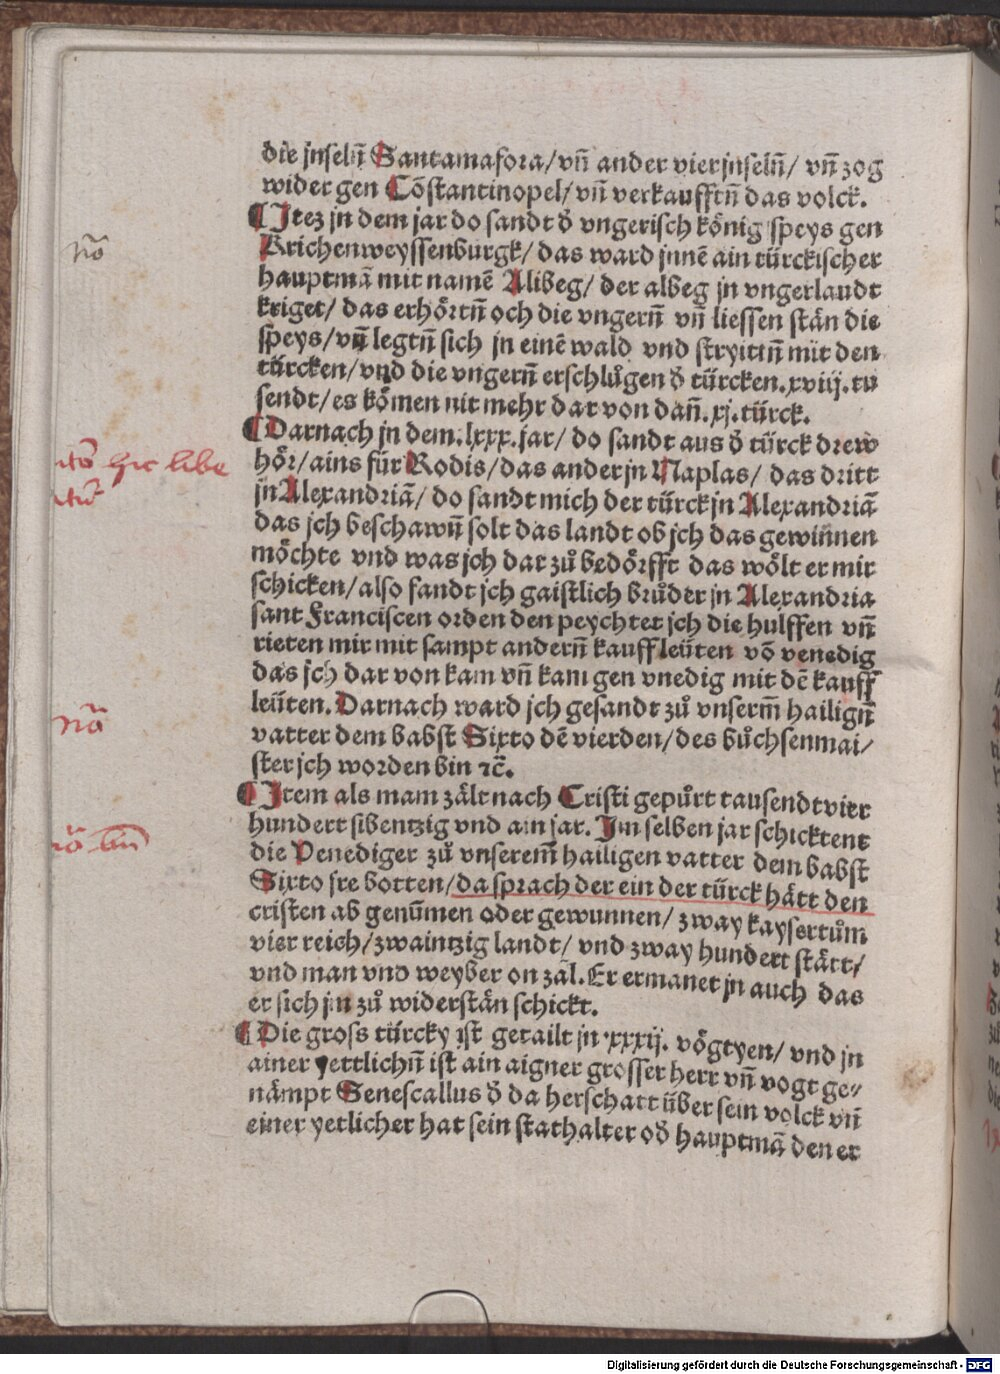 die jnseln̄ Santamafora/ vn̄ ander vier jnseln̄/ vn̄ zog
wider gen Cōstantinopel/ vn̄ verkaufftn̄ das volck.
¶ Itez jn dem jar do sandt ð vngerisch könig speys gen
Krichenweyssenburgk/ das ward jnnē ain türckischer
hauptmā mit namē Alibeg/ der albeg jn vngerlandt
krieget/ das erhörtn̄ och die vngern̄ vn̄ liessen stän die
speys/ vn̄ legtn̄ sich jn einē wald vnd stryittn̄ mit den
türcken/ vnd die vngern̄ erschlůgen ð türcken .xviij. tu
sendt/ es kömen nit mehr dar von dan̄ .xj. türck.
¶ Darnach jn dem .lxxx. jar/ do sandt aus ð türck drew
hör/ ains für Rodis/ das ander jn Naplas/ das dritt
jn Alexandriā/ do sandt mich der türck jn Alexandriā
das jch beschawn̄ solt das landt ob jch das gewinnen
möchte vnd was jch dar zů bedörfft das wölt er mir
schicken/ also fandt jch gaistlich brůder jn Alexandria
sant Franciscen orden den peychtet jch die hulffen vn̄
rieten mir mit sampt andern̄ kauffleüten vō venedig
das jch dar von kam vn̄ kam gen vnedig mit dē kauff
leüten. Darnach ward jch gesandt zů vnserm̄ hailign̄
vatter dem babst Sixto dē vierden/ des bůchsenmai/
ster jch worden bin ⁊c̄.
¶ Item als mam zält nach Cristi gepůrt tausendt vier
hundert sibentzig vnd ain jar. Im selben jar schicktent
die Venediger zů vnserem̄ hailigen vatter dem babst
Sixto jre botten/ da sprach der ein der türck hätt den
cristen ab genūmen oder gewunnen/ zway kaysertům
vier reich/ zwaintzig landt/ vnd zway hundert stätt/
vnd man vnd weyber on zal. Er ermanet jn auch das
er sich jm zů widerstän schickt.
¶ Die gross türcky ist getailt jn xxxij. vögtyen/ vnd jn
ainer yettlichn̄ ist ain aigner grosser herr vn̄ vogt ge⸗
nämpt Senescallus ð da herschatt über sein volck vn̄
einer yetlicher hat sein stathalter oð hauptmā den er
nō
hic libe
nō
Digitalisierung gefördert durch die Deutsche Forschungsgemeinschaft - DFG